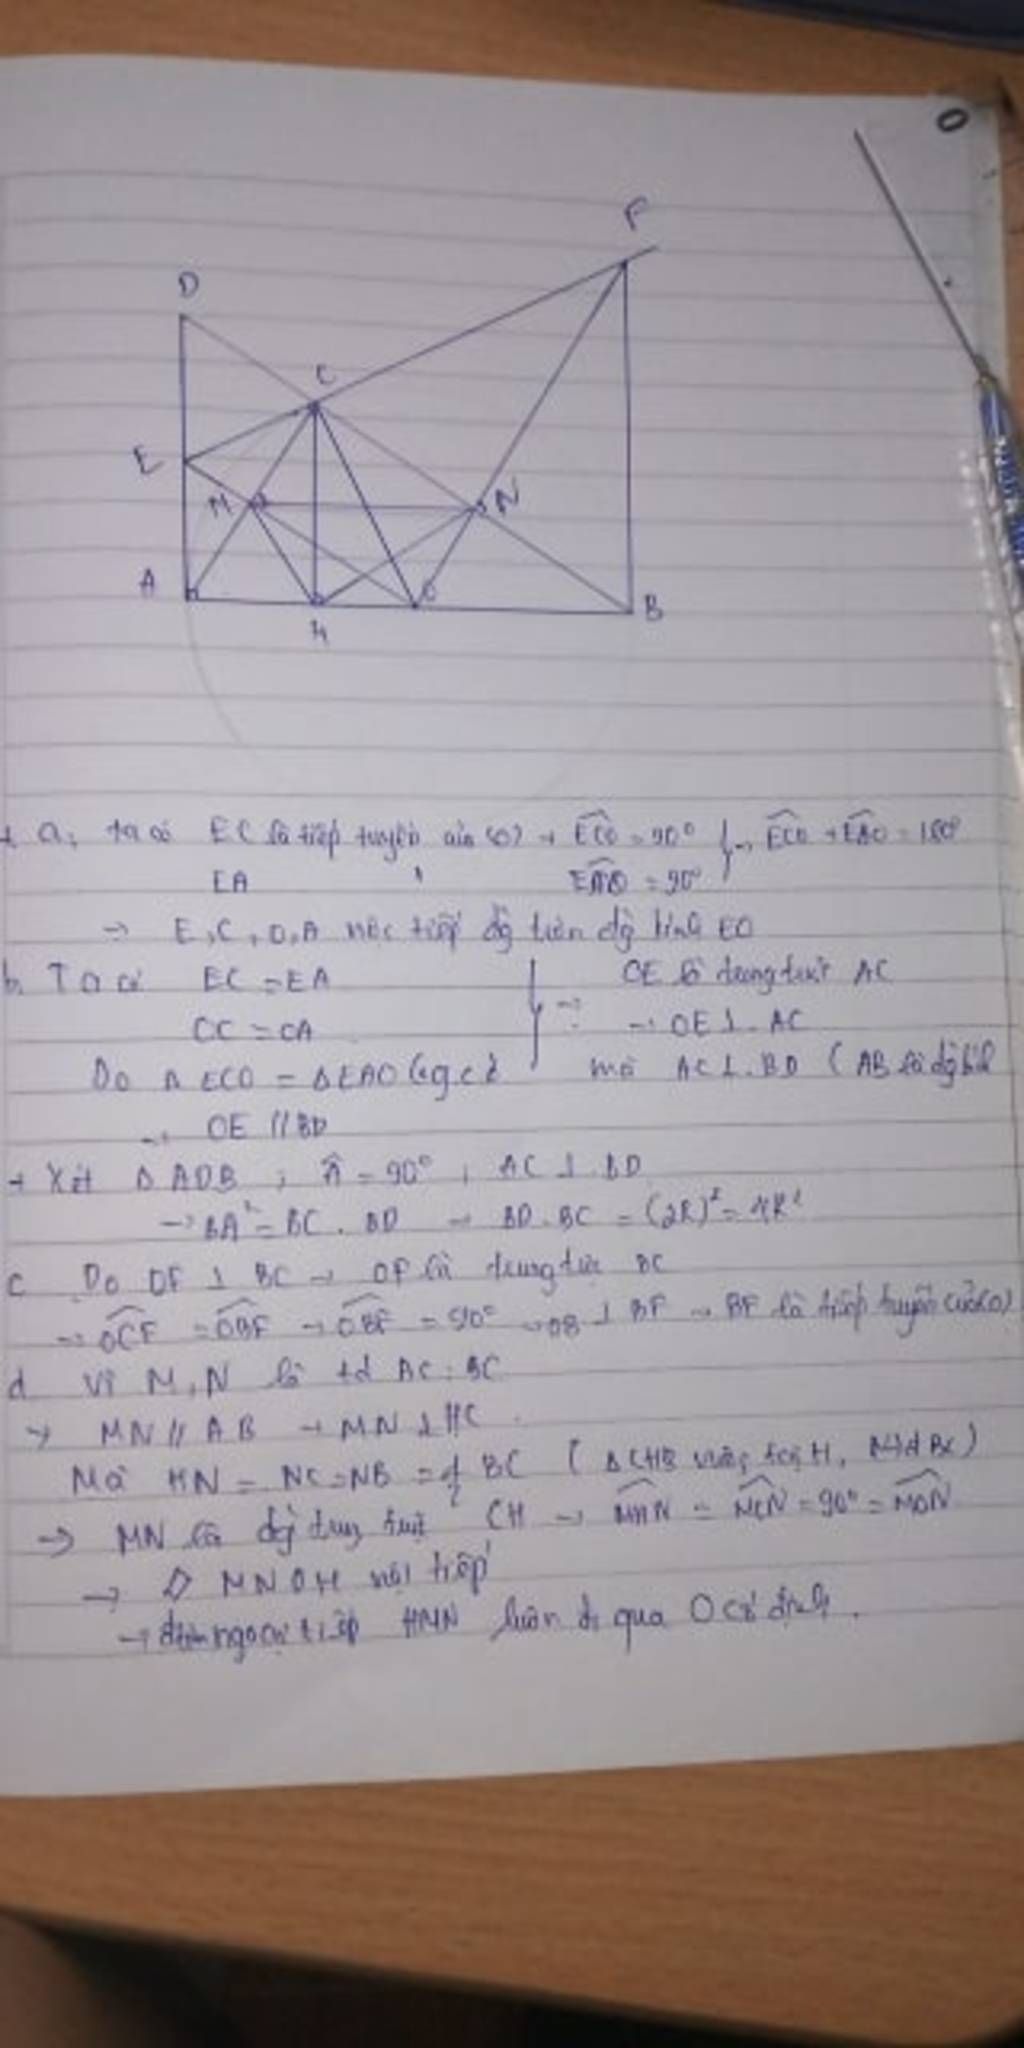 F
D
C
E
M
N
A
O
B
H
a, ta có EC là tiếp tuyến của (O) → ECO = 90° } → ECO + EAO = 180°
EA EAO = 90°
→ E, C, O, A nội tiếp đg tròn đg kính EO
b. Ta có EC = EA } → OE là trung trực AC
OC = OA → OE ⊥ AC
Do Δ ECO = ΔEAO mà AC ⊥ BD ( AB là đg kính
→ OE // BD
+ Xét Δ ADB , Â = 90° , AC ⊥ BD
→ BA² = BC . BD → BD . BC = (2R)² = 4R²
c Do OF ⊥ BC → OF là trung trực BC
→ OCF = OBF → OBF = 90° → OB ⊥ BF → BF là tiếp tuyến của (O)
d Vì M, N là td AC, BC
→ MN // AB → MN ⊥ HC
Mà HN = NC = NB = 1/2 BC ( ΔCHB vuông tại H, N td BC )
→ MN là đg trung trực CH → MHN = MCN = 90° = MON
→ MNOH nội tiếp
→ ngoại tiếp HMN luôn đi qua O cố định .